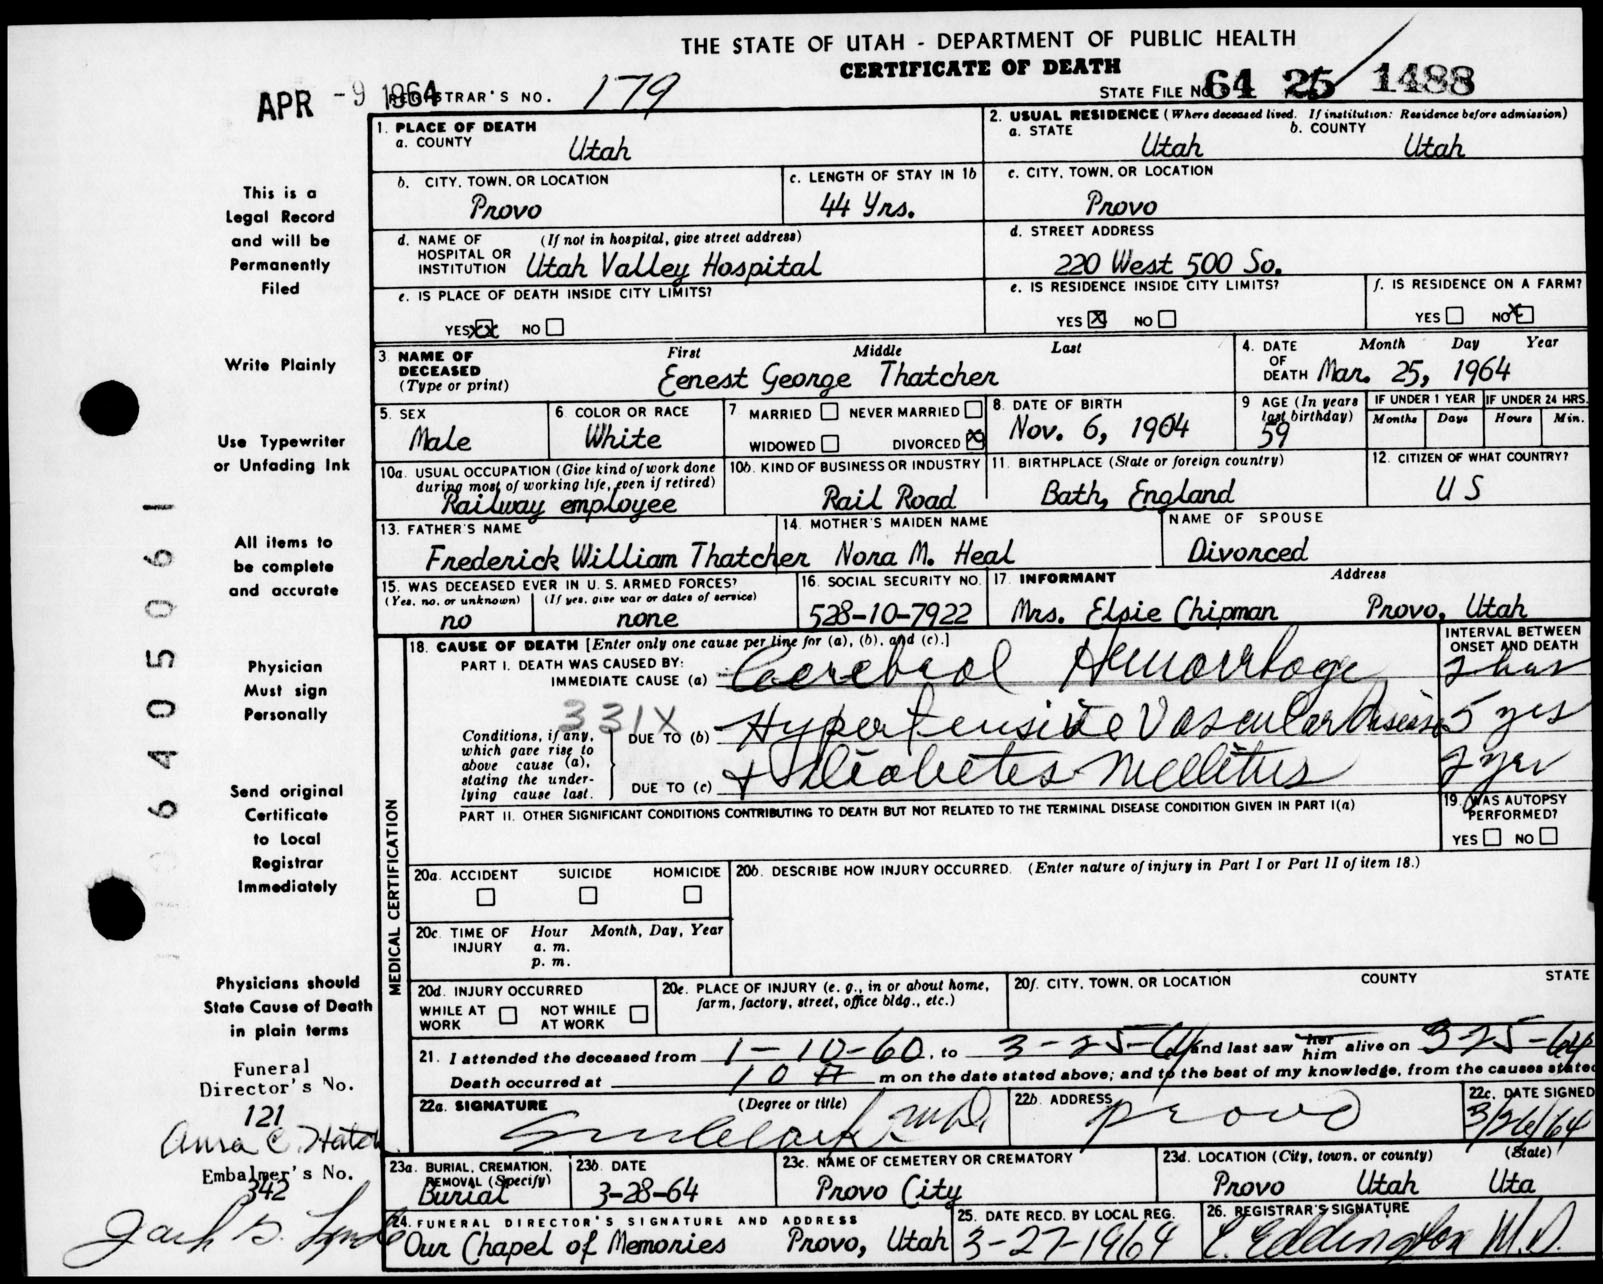 THE STATE OF UTAH - DEPARTMENT OF PUBLIC HEALTH
CERTIFICATE OF DEATH
APR -9 1964
REGISTRAR'S NO. 179
STATE FILE NO. 64 25 1488
1. PLACE OF DEATH
a. COUNTY Utah
2. USUAL RESIDENCE (Where deceased lived. If institution: Residence before admission)
a. STATE Utah b. COUNTY Utah
b. CITY, TOWN, OR LOCATION Provo
c. LENGTH OF STAY IN 1b 44 Yrs.
c. CITY, TOWN, OR LOCATION Provo
d. NAME OF HOSPITAL OR INSTITUTION (If not in hospital, give street address) Utah Valley Hospital
d. STREET ADDRESS 220 West 500 So.
e. IS PLACE OF DEATH INSIDE CITY LIMITS?
YES xx NO
e. IS RESIDENCE INSIDE CITY LIMITS?
YES X NO
f. IS RESIDENCE ON A FARM?
YES NO X
3. NAME OF DECEASED (Type or print)
First Middle Last
Eenest George Thatcher
4. DATE OF DEATH Month Day Year
Mar. 25, 1964
5. SEX Male
6. COLOR OR RACE White
7. MARRIED NEVER MARRIED
WIDOWED DIVORCED X
8. DATE OF BIRTH Nov. 6, 1904
9. AGE (In years last birthday) 59
IF UNDER 1 YEAR Months Days
IF UNDER 24 HRS. Hours Min.
10a. USUAL OCCUPATION (Give kind of work done during most of working life, even if retired) Railway employee
10b. KIND OF BUSINESS OR INDUSTRY Rail Road
11. BIRTHPLACE (State or foreign country) Bath, England
12. CITIZEN OF WHAT COUNTRY? U S
13. FATHER'S NAME Frederick William Thatcher
14. MOTHER'S MAIDEN NAME Nora M. Heal
NAME OF SPOUSE Divorced
15. WAS DECEASED EVER IN U. S. ARMED FORCES?
(Yes, no, or unknown) no
(If yes, give war or dates of service) none
16. SOCIAL SECURITY NO. 528-10-7922
17. INFORMANT Address
Mrs. Elsie Chipman Provo, Utah
MEDICAL CERTIFICATION
18. CAUSE OF DEATH [Enter only one cause per line for (a), (b), and (c).]
INTERVAL BETWEEN ONSET AND DEATH
PART I. DEATH WAS CAUSED BY:
IMMEDIATE CAUSE (a) Cerebral Hemorrhage 2 hrs
331X
Conditions, if any, which gave rise to above cause (a), stating the underlying cause last.
DUE TO (b) Hypertensive Vascular Disease 5 yrs
DUE TO (c) + Diabetes Mellitus 2 yrs
PART II. OTHER SIGNIFICANT CONDITIONS CONTRIBUTING TO DEATH BUT NOT RELATED TO THE TERMINAL DISEASE CONDITION GIVEN IN PART I(a)
19. WAS AUTOPSY PERFORMED?
YES NO
20a. ACCIDENT SUICIDE HOMICIDE
20b. DESCRIBE HOW INJURY OCCURRED. (Enter nature of injury in Part I or Part II of item 18.)
20c. TIME OF INJURY Hour Month, Day, Year
a. m.
p. m.
20d. INJURY OCCURRED
WHILE AT WORK NOT WHILE AT WORK
20e. PLACE OF INJURY (e. g., in or about home, farm, factory, street, office bldg., etc.)
20f. CITY, TOWN, OR LOCATION COUNTY STATE
21. I attended the deceased from 1-10-60, to 3-25-64 and last saw her him alive on 3-25-64
Death occurred at 10 A m on the date stated above; and to the best of my knowledge, from the causes stated
22a. SIGNATURE (Degree or title) Clark M.D.
22b. ADDRESS Provo
22c. DATE SIGNED 3/26/64
23a. BURIAL, CREMATION, REMOVAL (Specify) Burial
23b. DATE 3-28-64
23c. NAME OF CEMETERY OR CREMATORY Provo City
23d. LOCATION (City, town, or county) (State)
Provo Utah Uta
24. FUNERAL DIRECTOR'S SIGNATURE AND ADDRESS
Our Chapel of Memories Provo, Utah
25. DATE RECD. BY LOCAL REG. 3-27-1964
26. REGISTRAR'S SIGNATURE Eddington M.D.
This is a
Legal Record
and will be
Permanently
Filed
Write Plainly
Use Typewriter
or Unfading Ink
All items to
be complete
and accurate
Physician
Must sign
Personally
Send original
Certificate
to Local
Registrar
Immediately
Physicians should
State Cause of Death
in plain terms
Funeral
Director's No.
121
Anna C. Hatch
Embalmer's No.
342
Jack
6405061